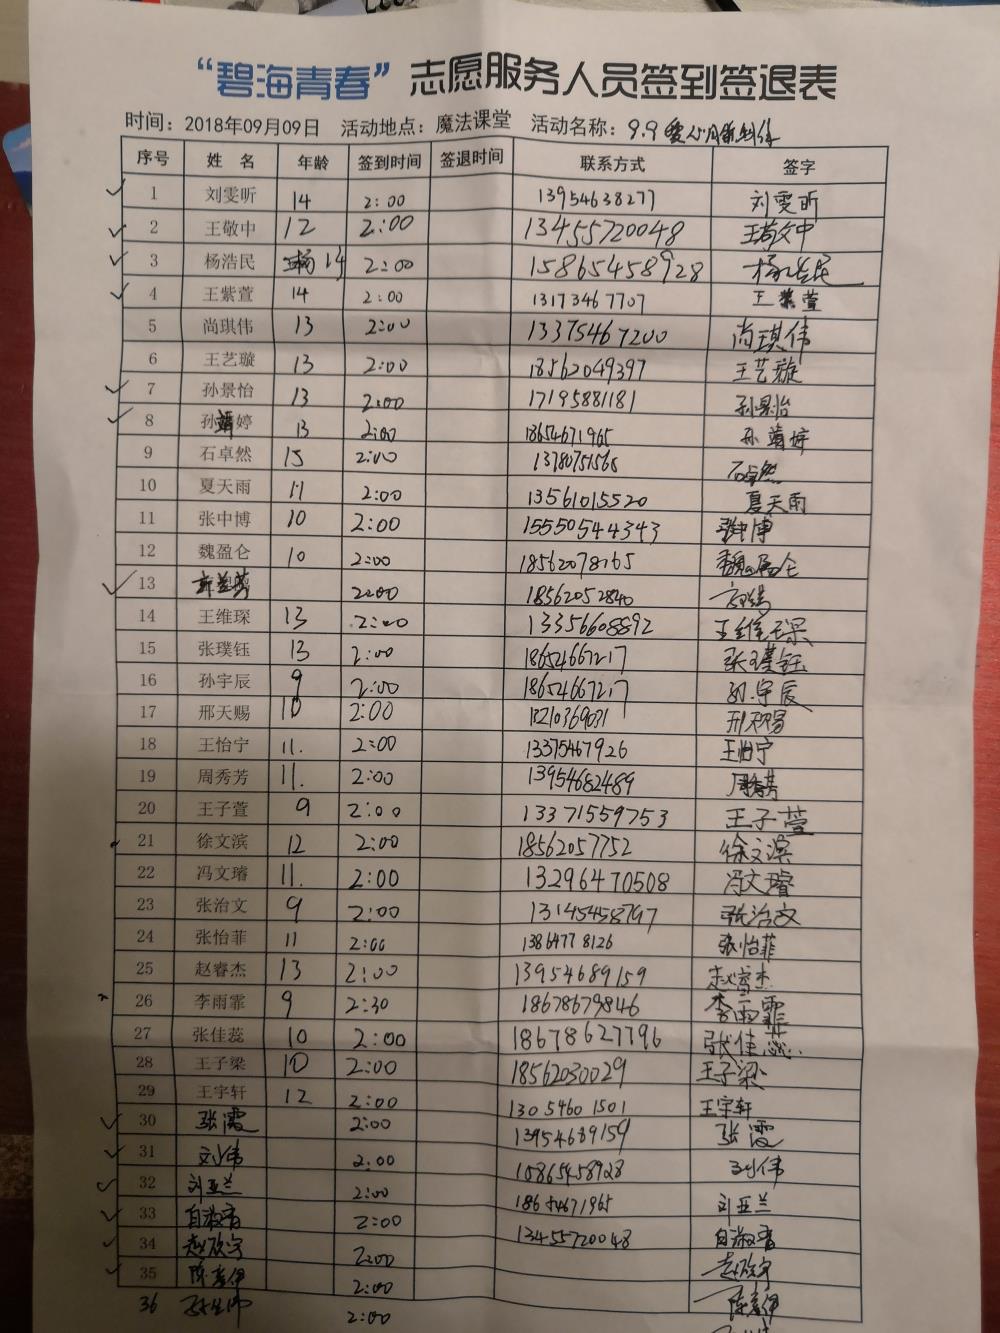 “碧海青春”志愿服务人员签到签退表
时间：2018年09月09日 活动地点：魔法课堂 活动名称：9.9
序号 姓名 年龄 签到时间 签退时间 联系方式 签字
1 刘雯昕 14 2:00 13954638277 刘雯昕
2 王敬中 12 2:00 13455720048 王敬中
3 杨浩民 14 2:00 15865458928 杨浩民
4 王紫萱 14 2:00 13173467707 王紫萱
5 尚琪伟 13 2:00 13375467200 尚琪伟
6 王艺璇 13 2:00 18562049397 王艺璇
7 孙景怡 13 2:00 17195881181 孙景怡
8 孙靖婷 13 2:00 18654671965 孙靖婷
9 石卓然 15 2:00 13780751568 石卓然
10 夏天雨 11 2:00 13561015520 夏天雨
11 张中博 10 2:00 15550544343 张中博
12 魏盈仑 10 2:00 18562078165 魏盈仑
13 2:00 18562052840
14 王维琛 13 2:00 13356608892 王维琛
15 张璞钰 13 2:00 186524667217 张璞钰
16 孙宇辰 9 2:00 18654667217 孙宇辰
17 邢天赐 10 2:00 13210369031 邢天赐
18 王怡宁 11. 2:00 13375467926 王怡宁
19 周秀芳 11. 2:00 13954682489 周秀芳
20 王子萱 9 2:00 13371559753 王子萱
21 徐文滨 12 2:00 18562057752 徐文滨
22 冯文璿 11. 2:00 13296470508 冯文璿
23 张治文 9 2:00 13145458797 张治文
24 张怡菲 11 2:00 13864778126 张怡菲
25 赵睿杰 13 2:00 13954689159 赵睿杰
26 李雨霏 9 2:30 18678679846 李雨霏
27 张佳蕊 10 2:00 18678627796 张佳蕊
28 王子梁 10 2:00 18562030029 王子梁
29 王宇轩 12 2:00 13054601501 王宇轩
30 张霞 2:00 13954689159 张霞
31 刘伟 2:00 15865458928 刘伟
32 刘亚兰 2:00 18654671965 刘亚兰
33 2:00 13455720048
34 赵欣宇 2:00 赵欣宇
35 陈彦伊 2:00 陈彦伊
36 2:00